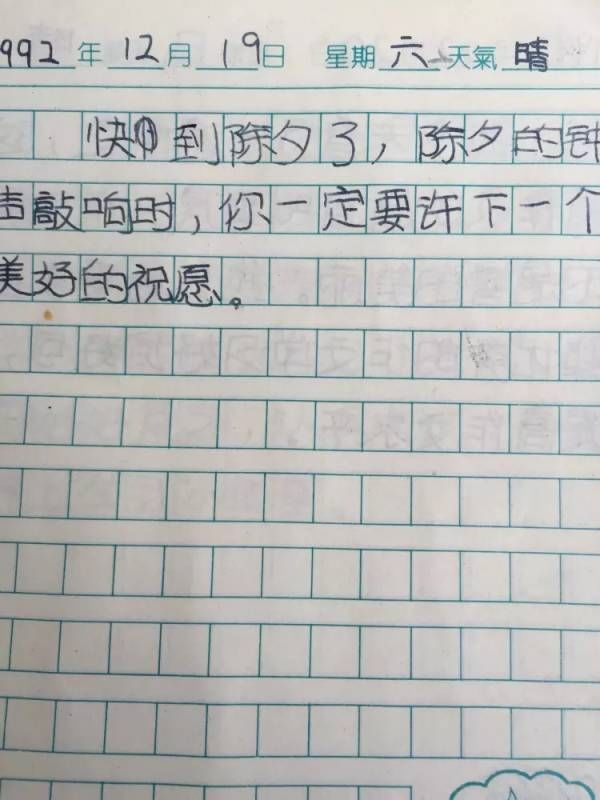 992年12月19日 星期六 天氣晴
快到除夕了，除夕的钟
声敲响时，你一定要许下一个
美好的祝愿。